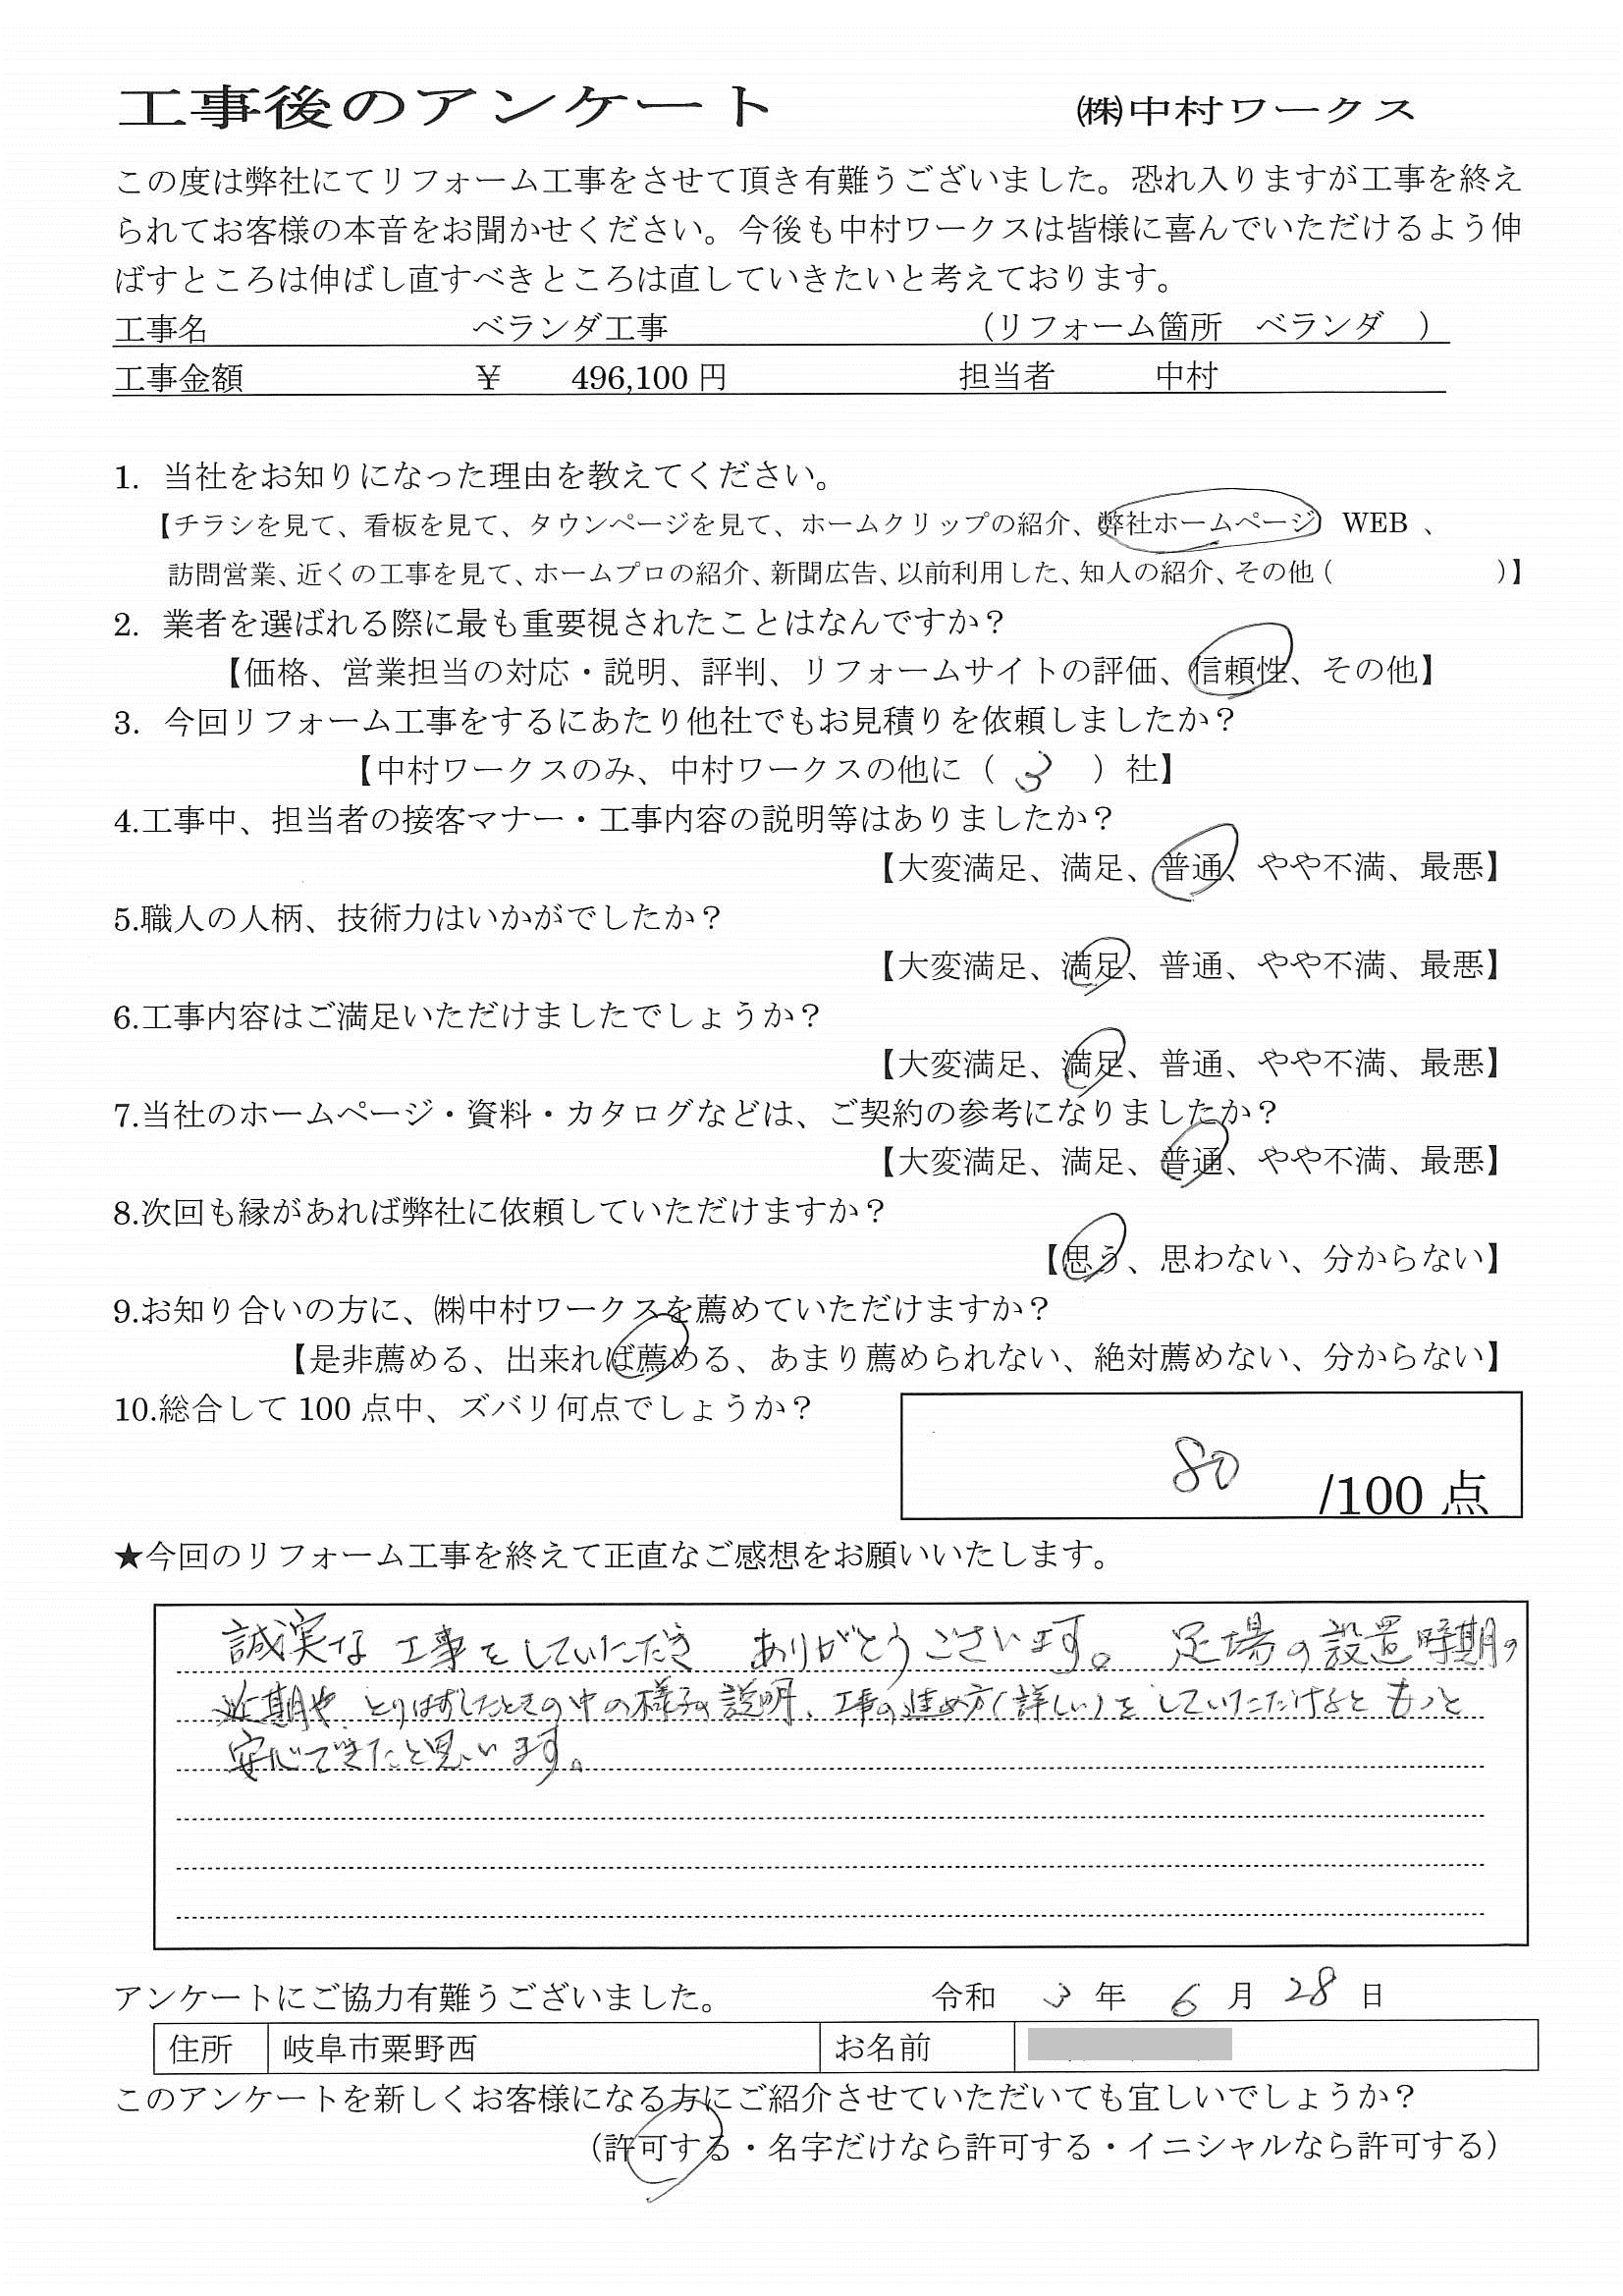 工事後のアンケート　㈱中村ワークス
この度は弊社にてリフォーム工事をさせて頂き有難うございました。恐れ入りますが工事を終え
られてお客様の本音をお聞かせください。今後も中村ワークスは皆様に喜んでいただけるよう伸
ばすところは伸ばし直すべきところは直していきたいと考えております。
工事名　ベランダ工事　（リフォーム箇所　ベランダ　）
工事金額　￥　496,100 円　担当者　中村
1. 当社をお知りになった理由を教えてください。
【チラシを見て、看板を見て、タウンページを見て、ホームクリップの紹介、弊社ホームページ） WEB 、
訪問営業、近くの工事を見て、ホームプロの紹介、新聞広告、以前利用した、知人の紹介、その他（　）】
2. 業者を選ばれる際に最も重要視されたことはなんですか？
【価格、営業担当の対応・説明、評判、リフォームサイトの評価、信頼性、その他】
3. 今回リフォーム工事をするにあたり他社でもお見積りを依頼しましたか？
【中村ワークスのみ、中村ワークスの他に（ 3 ）社】
4.工事中、担当者の接客マナー・工事内容の説明等はありましたか？
【大変満足、満足、普通、やや不満、最悪】
5.職人の人柄、技術力はいかがでしたか？
【大変満足、満足、普通、やや不満、最悪】
6.工事内容はご満足いただけましたでしょうか？
【大変満足、満足、普通、やや不満、最悪】
7.当社のホームページ・資料・カタログなどは、ご契約の参考になりましたか？
【大変満足、満足、普通、やや不満、最悪】
8.次回も縁があれば弊社に依頼していただけますか？
【思う、思わない、分からない】
9.お知り合いの方に、㈱中村ワークスを薦めていただけますか？
【是非薦める、出来れば薦める、あまり薦められない、絶対薦めない、分からない】
10.総合して 100 点中、ズバリ何点でしょうか？
80 /100 点
★今回のリフォーム工事を終えて正直なご感想をお願いいたします。
誠実な工事をしていただき ありがとうございます。 足場の設置時期の
近期や、とりはずしたときの中の様子の説明、工事の進め方（詳しい）をしていただけるともっと
安心できたと思います。
アンケートにご協力有難うございました。　令和 3 年 6 月 28 日
住所　岐阜市粟野西　お名前
このアンケートを新しくお客様になる方にご紹介させていただいても宜しいでしょうか？
（許可する・名字だけなら許可する・イニシャルなら許可する）